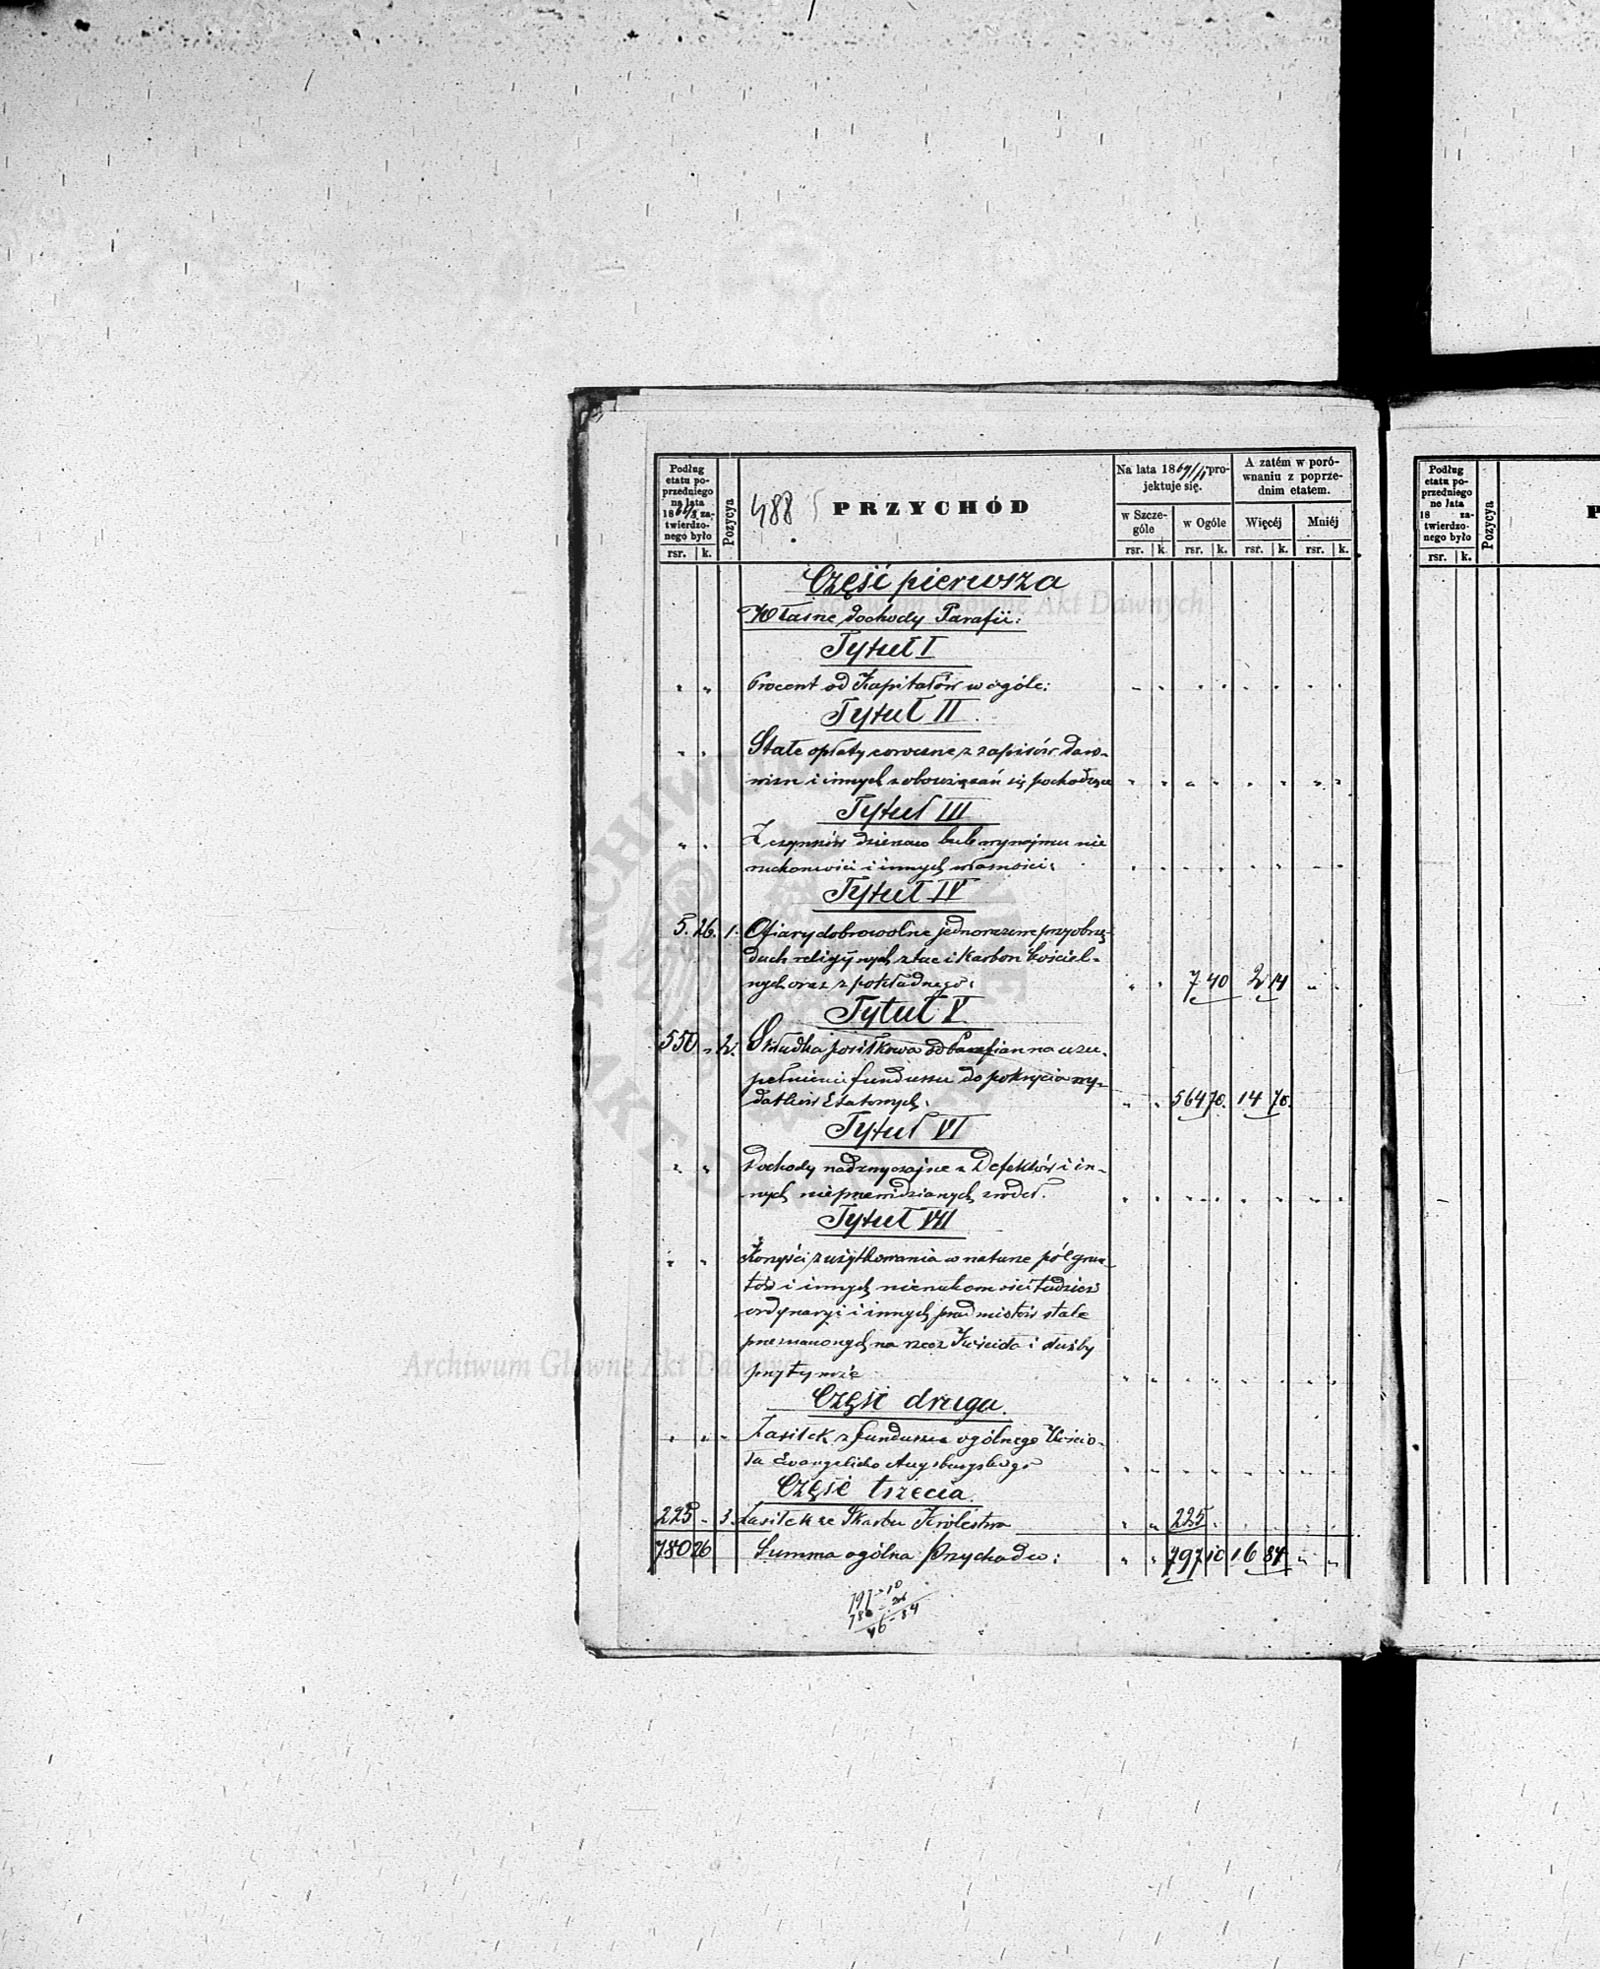 Podług etatu poprzedniego na lata 18 zatwierdzonego było
rsr. k.
Pozycya
488
PRZYCHÓD
Na lata 1869/ projektuje się.
w Szczególe
w Ogóle
rsr. k. rsr. k.
A zatém w porównaniu z poprzednim etatem.
Więcéj
Mniéj
rsr. k. rsr. k.
Część pierwsza
Własne dochody Parafii:
Tytuł I
" " Procent od Kapitałów w ogóle: " " " " " " " "
Tytuł II
" " Stałe opłaty coroczne z zapisów daw-
nień i innych zobowiązań się pochodzące " " " " " " " "
Tytuł III
" " Z czynszów dzierżaw lub wynajmu nie
ruchomości i innych własności: " " " " " " " "
Tytuł IV
5. 26. 1. Ofiary dobrowolne jednorazowe przy obrzę-
dach religijnych z tac i Karbon Kościel-
nych oraz z pokładnego: " " 7 40 2 14 " "
Tytuł V
550 " 2. Składka posiłkowa od Parafian na uzu-
pełnienie funduszu do pokrycia wy-
datków Etatowych: " " 564 70. 14 70.
Tytuł VI
" " Dochody nadzwyczajne z Defektów i in-
nych nieprzewidzianych źródeł. " " " " " " " "
Tytuł VII
" " Korzyści z użytkowania w naturze pól grun-
tów i innych nieruchomości tudzież
ordynaryi i innych przedmiotów stale
przeznaczonych na rzecz Kościoła i służby
przy tymże " " " " " " " "
Część druga.
" " " Zasiłek z funduszu ogólnego Kościo-
ła Ewangelicko Augsburgskiego " " " " " " " "
Część trzecia
225 " 3. Zasiłek ze Skarbu Królestwa " " 225 " " " " "
780 26 Summa ogólna Przychodu: " " 797 10 16 84 " "
797 - 10
780 - 26
16 - 84
Podług etatu poprzedniego na lata 18 zatwierdzonego było
rsr. k.
Pozycya
P
Archiwum Główne Akt Dawnych
Archiwum Główne Akt Dawnych